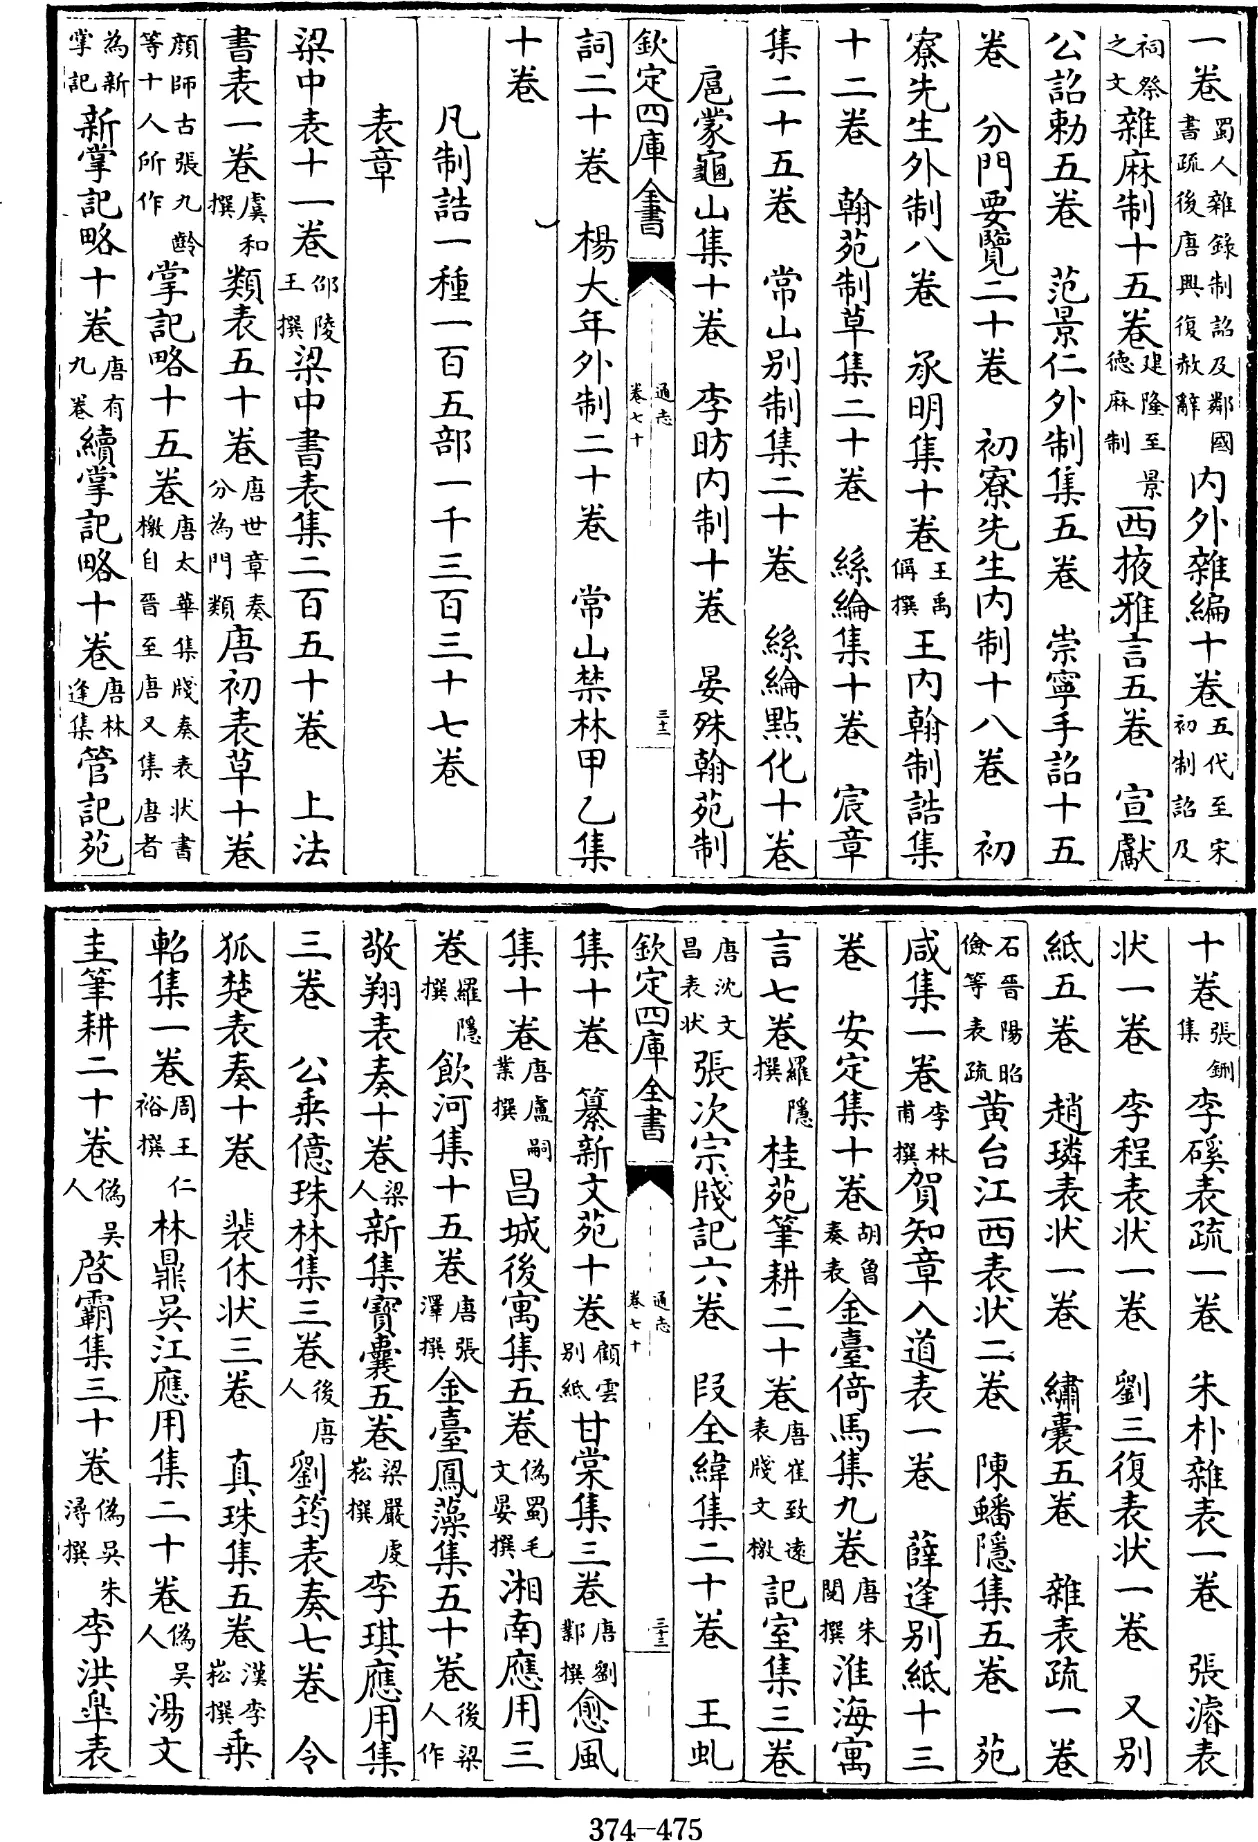 一卷蜀人雜錄制詔及鄰國書疏後唐興復赦辭内外雜編十卷五代至宋初制詔及
祠祭之文雜麻制十五卷建隆至景德麻制西掖雅言五卷　宣獻
公詔勅五卷　范景仁外制集五卷　崇寧手詔十五
卷　分門要覽二十卷　初寮先生内制十八卷　初
寮先生外制八卷　承明集十卷王禹偁撰王内翰制誥集
十二卷　翰苑制草集二十卷　絲綸集十卷　宸章
集二十五卷　常山别制集二十卷　絲綸點化十卷
扈蒙鼇山集十卷　李昉内制十卷　晏殊翰苑制
欽定四庫全書　通志卷七十　三十二
詞二十卷　楊大年外制二十卷　常山禁林甲乙集
十卷
凡制誥一種一百五部一千三百三十七卷
表章
梁中表十一卷邵陵王撰梁中書表集二百五十卷　上法
書表一卷虞和撰類表五十卷唐世章奏分為門類唐初表草十卷
顔師古張九齡等十人所作掌記略十五卷唐太華集牋奏表状書檄自晉至唐又集唐者
為新掌記新掌記略十卷唐有九卷續掌記略十卷唐林逢集管記苑
十卷張鉶集李磎表疏一卷　朱朴雜表一卷　張濬表
状一卷　李程表状一卷　劉三復表状一卷　又别
紙五卷　趙璘表状一卷　繡囊五卷　雜表疏一卷
石晉陽昭儉等表疏黄台江西表状二卷　陳蟠隱集五卷　苑
咸集一卷李林甫撰賀知章入道表一卷　薛逢别紙十三
卷　安定集十卷胡魯奏表金臺倚馬集九卷唐朱閲撰淮海寓
言七卷羅隱撰桂苑筆耕二十卷唐崔致遠表牋文檄記室集三卷
唐沈文昌表状張次宗牋記六卷　段全緯集二十卷　王虬
欽定四庫全書　通志卷七十　三十三
集十卷　纂新文苑十卷顧雲别紙甘棠集三卷唐劉鄴撰愈風
集十卷唐盧嗣業撰昌城後寓集五卷偽蜀毛文晏撰湘南應用三
卷羅隱撰飲河集十五卷唐張澤撰金臺鳳藻集五十卷後梁人作
敬翔表奏十卷梁人新集寶囊五卷梁嚴虔崧撰李琪應用集
三卷　公乘億珠林集三卷後唐人劉筠表奏七卷　令
狐楚表奏十卷　裴休状三卷　真珠集五卷漢李崧撰乗
軺集一卷周王仁裕撰林鼎吳江應用集二十卷偽吳人湯文
圭筆耕二十卷偽吳人啓霸集三十卷偽吳朱潯撰李洪臯表
374—475